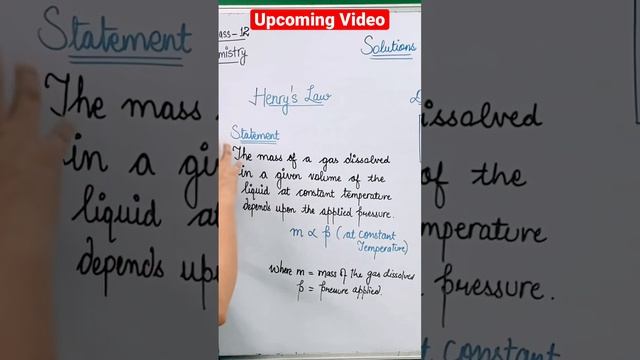 Upcoming Video
ass-12
mistry
Solutions
Henry's Law
Statement
The mass of a gas dissolved
in a given volume of the
liquid at constant temperature
depends upon the applied pressure.
m ∝ p (at constant
Temperature)
where m = mass of the gas dissolved
p = pressure applied.
Statement
The mass
in a gi
liquid at
depends up
dissolved
of the
temperature
pressure.
t constant